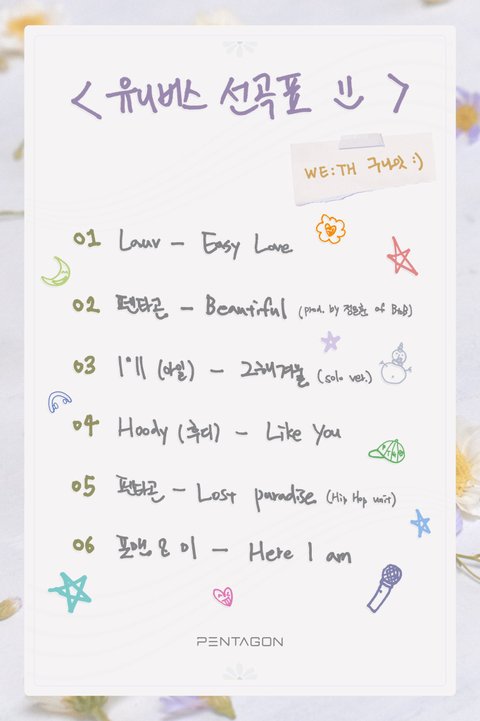 < 유니버스 선곡표 >
WE:TH 구나잇 :)
01 Lauv - Easy Love
02 펜타곤 - Beautiful (prod. by 정일훈 of BtoB)
03 I'll (아일) - 그해겨울 (solo ver.)
04 Hoody (후디) - Like You
05 펜타곤 - Lost paradise (Hip Hop unit)
06 포맨 & 미 - Here I am
PENTAGON